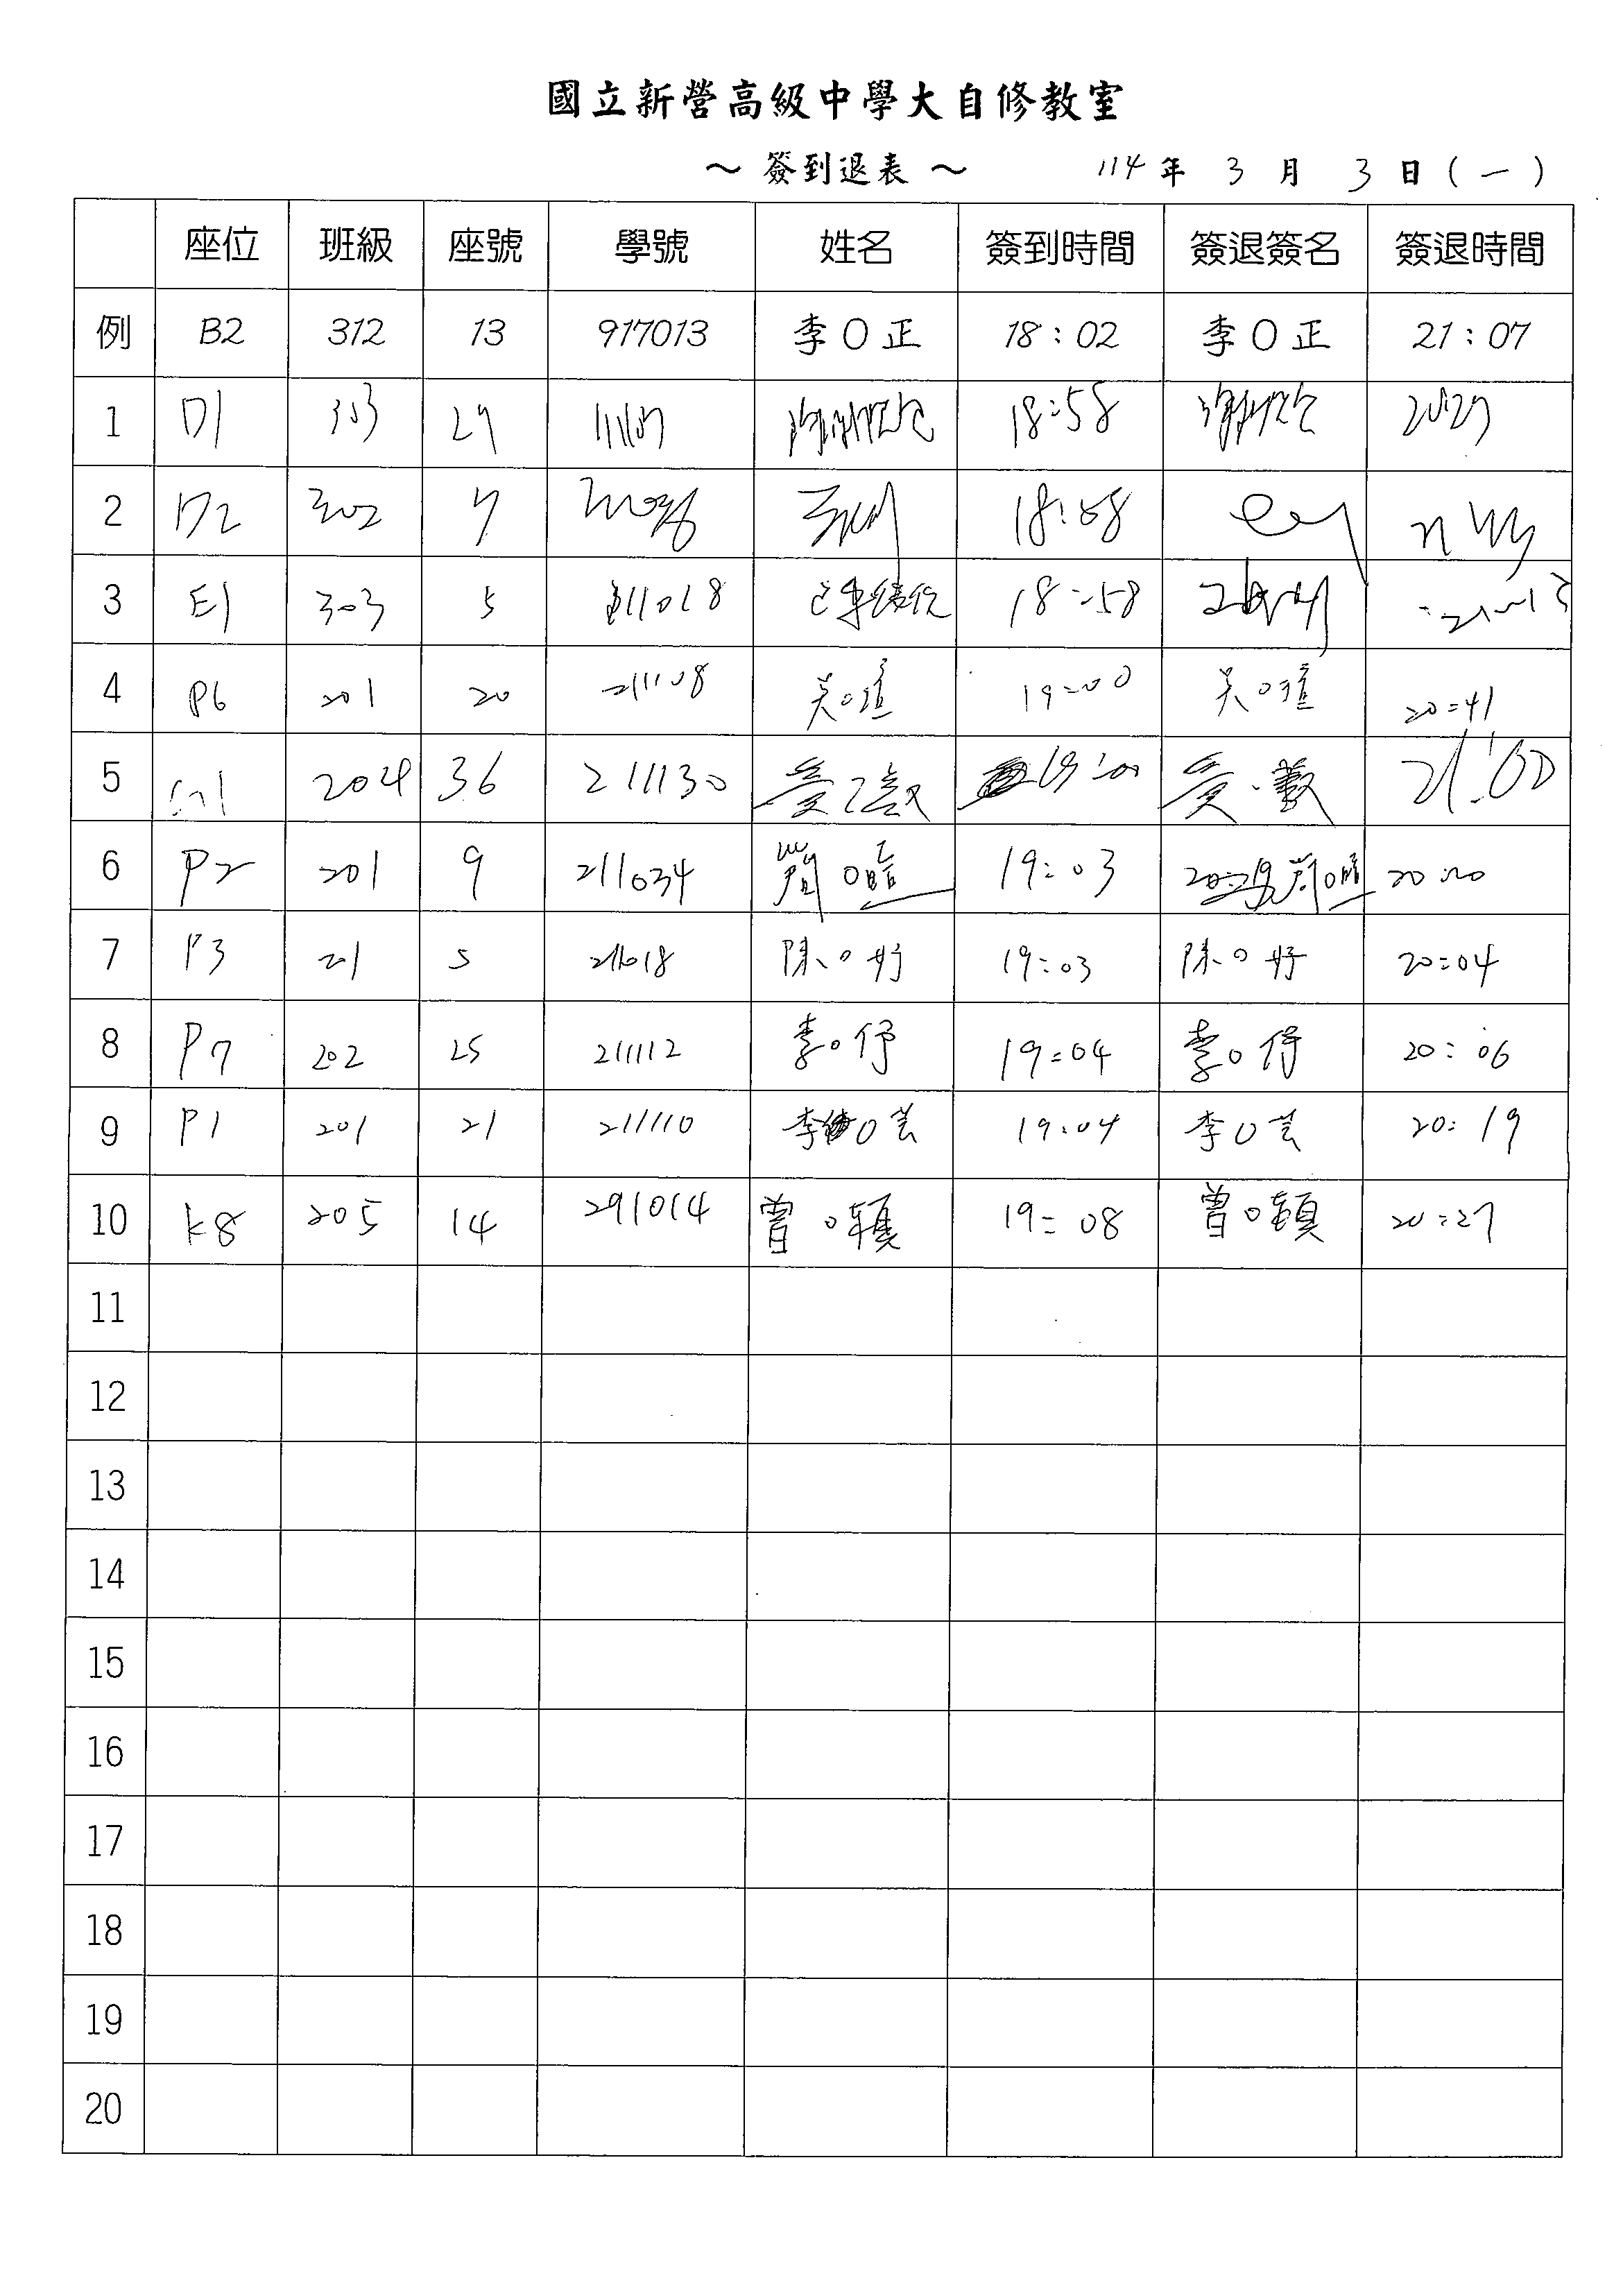 國立新營高級中學大自修教室
～ 簽到退表 ～ 114 年 3 月 3 日 ( 一 )
座位 班級 座號 學號 姓名 簽到時間 簽退簽名 簽退時間
例 B2 312 13 917013 李O正 18:02 李O正 21:07
1 D1 303 29 18:58
2 D2 302 7 18:58
3 E1 303 5 18:58
4 P6 201 20 211108 吳O瑄 19:00 吳O瑄 20:41
5 204 36 211130 21:00
6 P2 201 9 211034 19:03
7 P3 21 5 211018 陳O妤 19:03 陳O妤 20:04
8 P7 202 25 211112 李O伃 19:04 李O伃 20:06
9 P1 201 21 211110 李O芸 19:04 李O芸 20:19
10 K8 205 14 291014 曾O穎 19:08 曾O穎 20:27
11
12
13
14
15
16
17
18
19
20